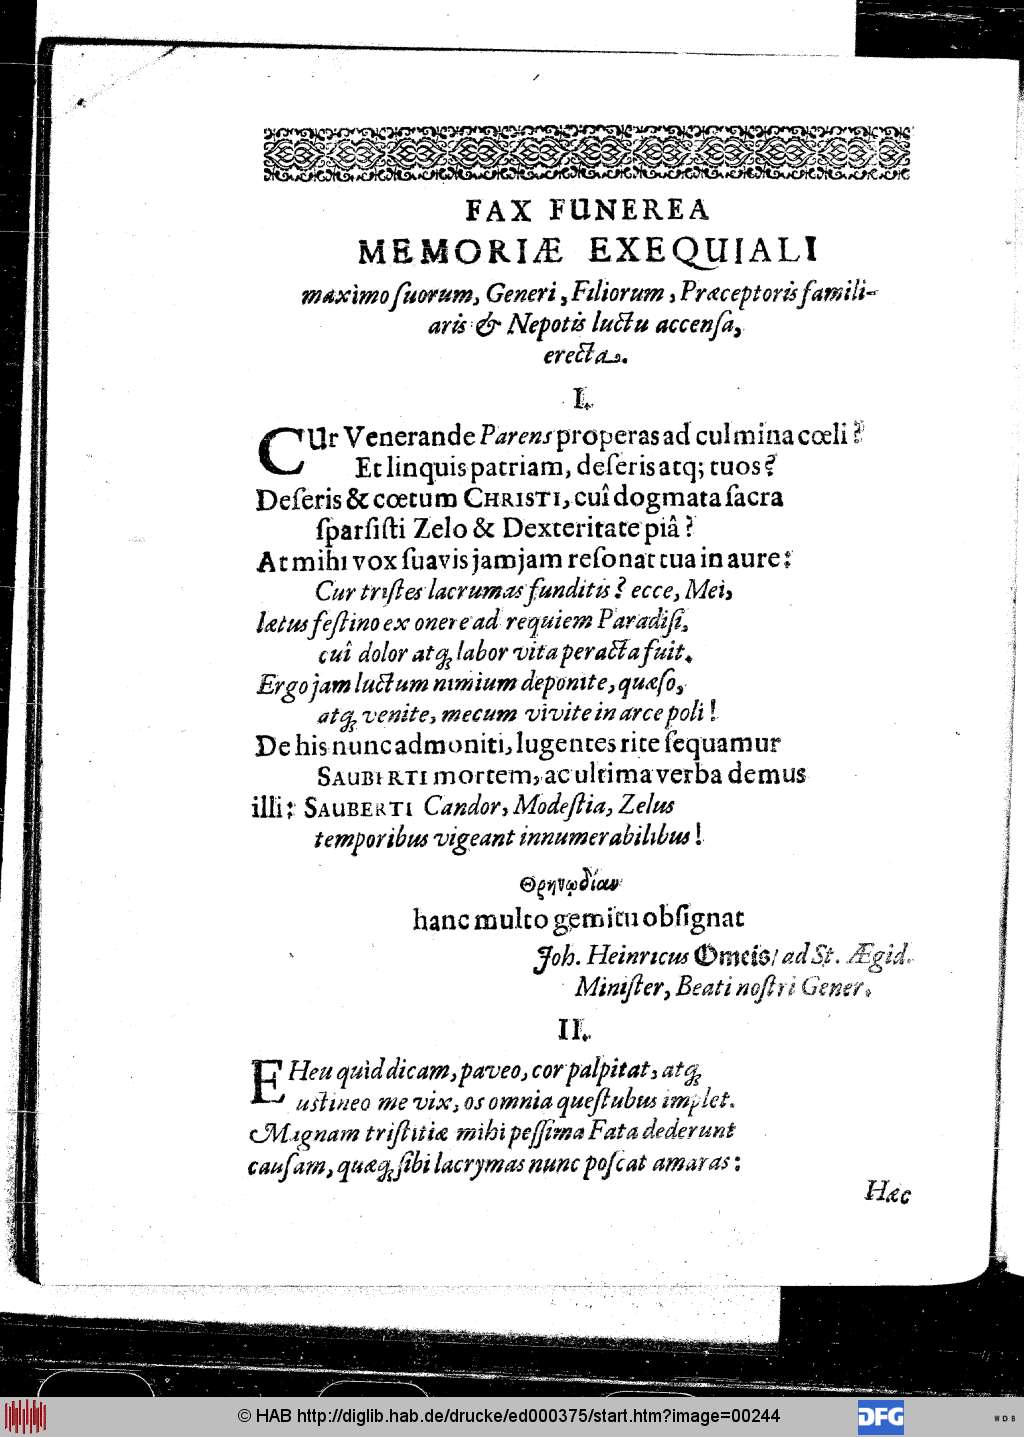 FAX FUNEREA
MEMORIÆ EXEQUIALI
maximo ſuorum, Generi, Filiorum, Præceptoris famili-
aris & Nepotis luctu accenſa,
erecta.
I.
CUr Venerande Parens properas ad culmina cœli?
Et linquis patriam, deſeris atq; tuos?
Deſeris & cœtum CHRISTI, cuî dogmata ſacra
ſparſiſti Zelo & Dexteritate piâ?
At mihi vox ſuavis jamjam reſonat tua in aure:
Cur triſtes lacrumas funditis? ecce, Mei,
lætus feſtino ex onere ad requiem Paradiſi,
cuî dolor atq; labor vita peracta fuit.
Ergo jam luctum nimium deponite, quæſo,
atq; venite, mecum vivite in arce poli!
De his nunc admoniti, lugentes rite ſequamur
SAUBERTI mortem, ac ultima verba demus
illi: SAUBERTI Candor, Modeſtia, Zelus
temporibus vigeant innumerabilibus!
Θρηνῳδίαν
hanc multo gemitu obſignat
Joh. Heinricus Omeis/ ad St. Ægid.
Miniſter, Beati noſtri Gener.
II.
EHeu quid dicam, paveo, cor palpitat, atq;
uſtineo me vix, os omnia queſtubus implet.
Magnam triſtitiæ mihi peſſima Fata dederunt
cauſam, quæq; ſibi lacrymas nunc poſcat amaras:
Hæc
© HAB http://diglib.hab.de/drucke/ed000375/start.htm?image=00244
DFG
WDB